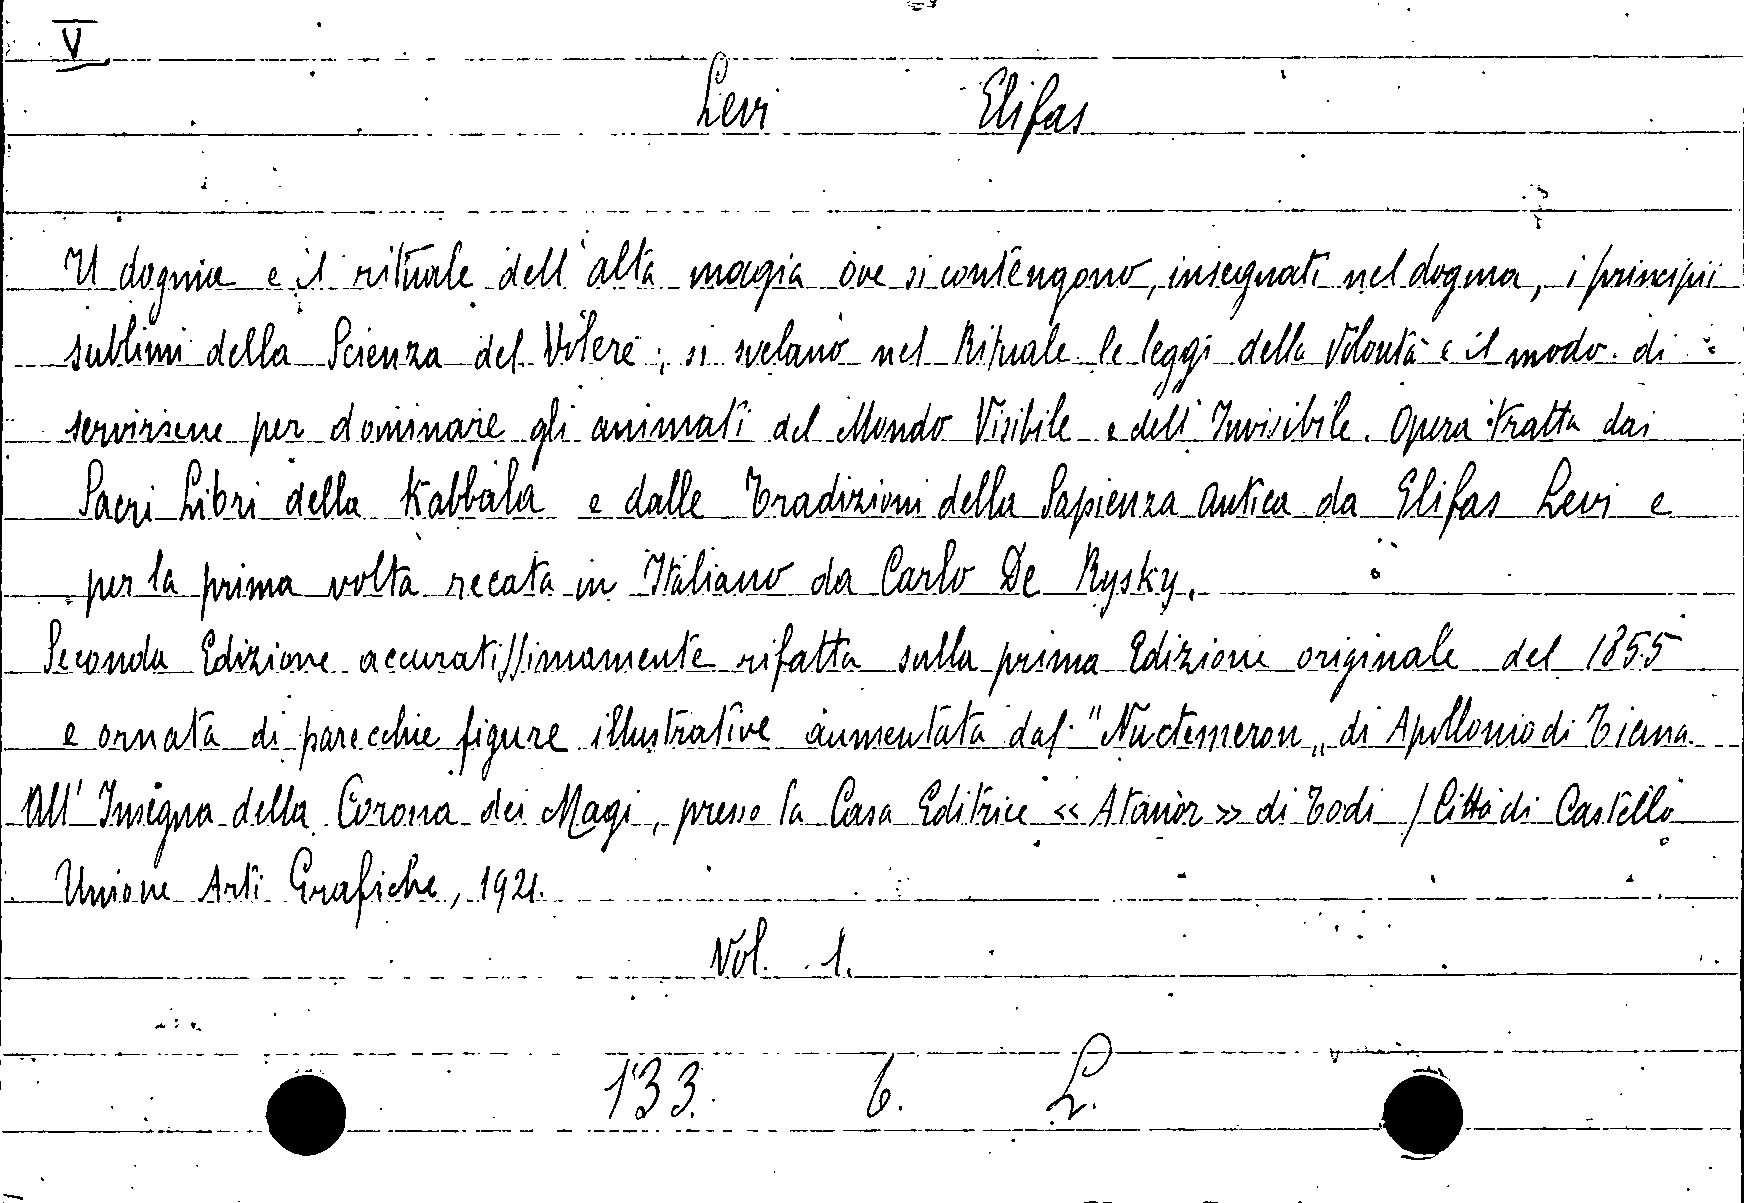 V
Levi Elifas
Il dogma e il rituale dell'alta magia ove si contengono, insegnati nel dogma, i principii
sublimi della Scienza del Volere; si svelano nel Rituale le leggi della Volontà e il modo di
servirsene per dominare gli animati del Mondo Visibile e dell'Invisibile. Opera tratta dai
Sacri Libri della Kabbala e dalle Tradizioni della Sapienza Antica da Elifas Levi e
per la prima volta recata in Italiano da Carlo De Rysky.
Seconda Edizione accuratissimamente rifatta sulla prima Edizione originale del 1855
e ornata di parecchie figure illustrative aumentata dal "Nuctemeron„ di Apollonio di Tiana.
All'Insegna della Corona dei Magi, presso la Casa Editrice «Atanòr» di Todi / Città di Castello
Unione Arti Grafiche, 1921.
Vol. 1.
133. 6. L.